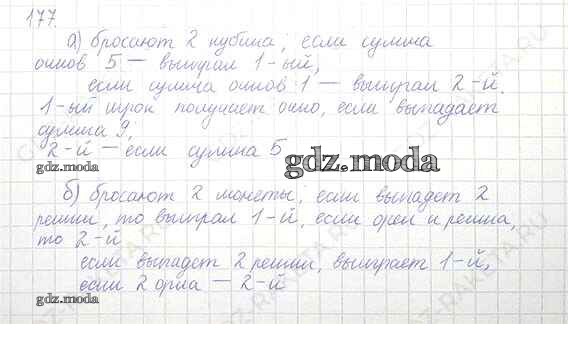 177.
а) бросают 2 кубика; если сумма
очков 5 — выиграл 1-ый,
если сумма очков 1 — выиграл 2-й.
1-ый игрок получает очко, если выпадает
сумма 9,
2-й — если сумма 5
gdz.moda
б) бросают 2 монеты; если выпадет 2
решки, то выиграл 1-й, если орел и решка,
то 2-й
если выпадет 2 решки, выиграет 1-й,
gdz.moda
если 2 орла — 2-й
gdz.moda